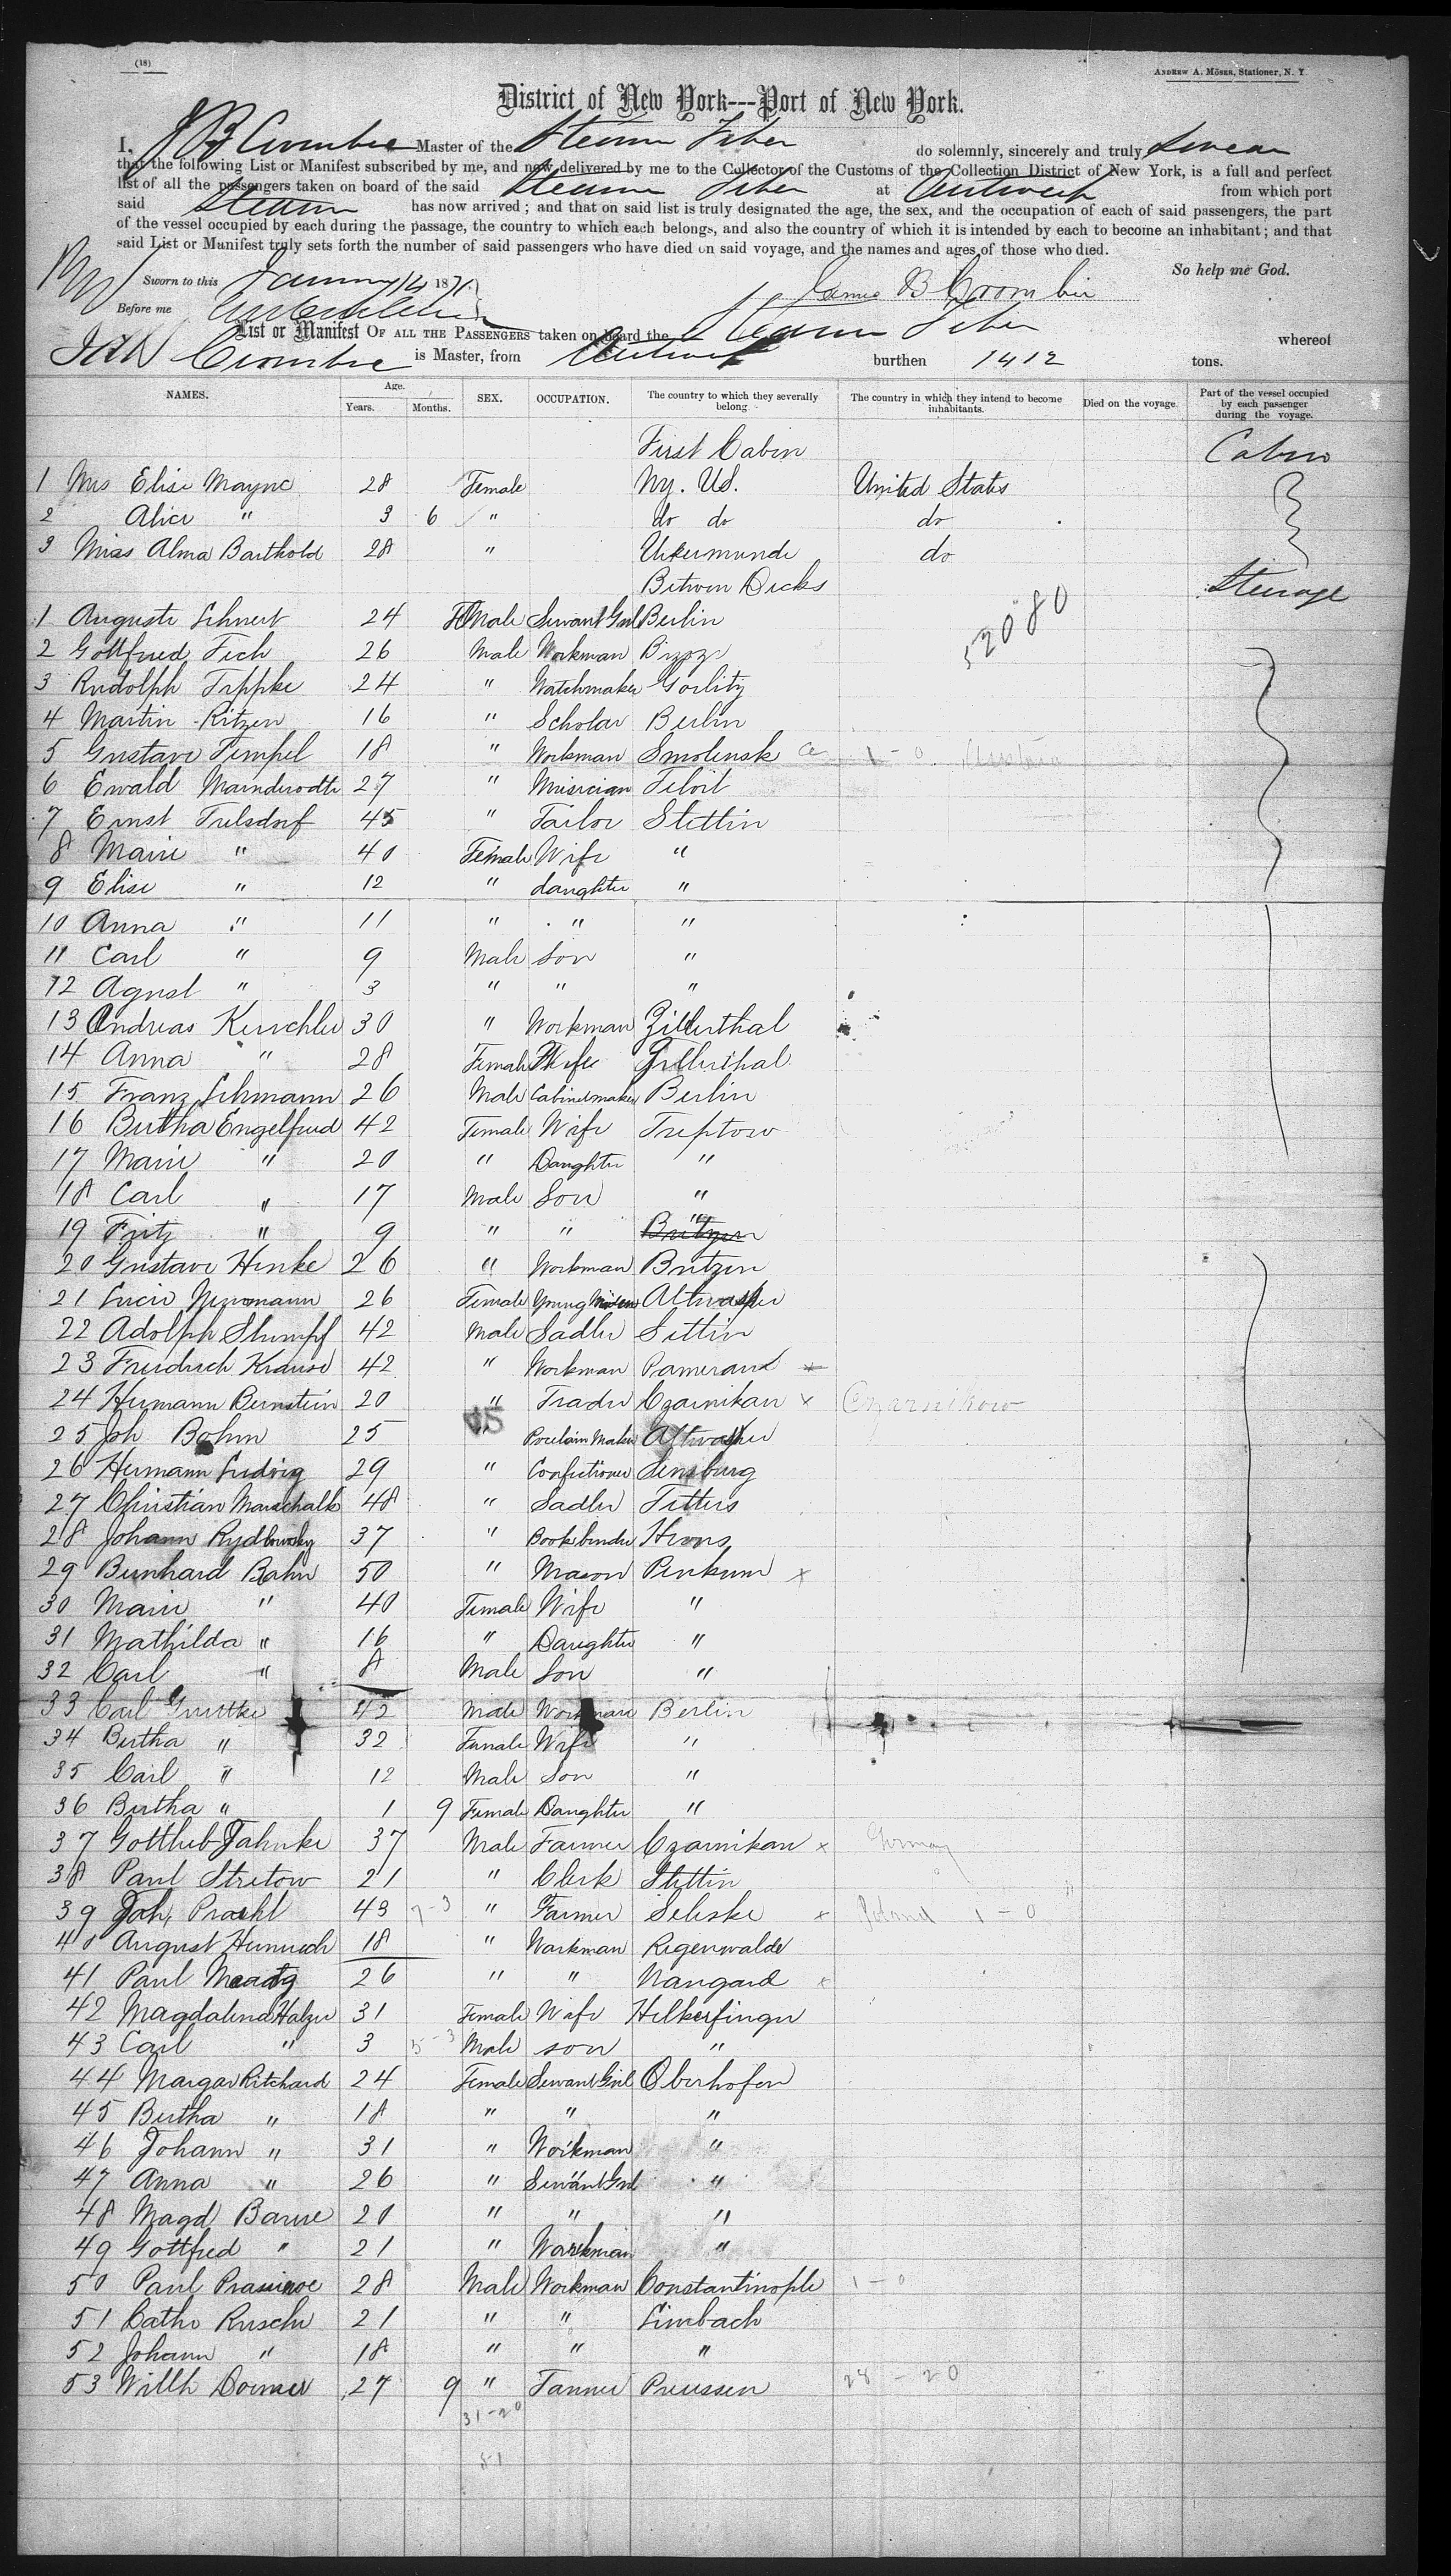 (18)
ANDREW A. MÖSER, Stationer, N. Y.
District of New York---Port of New York.
I, J B Crombie Master of the Steam Tiber do solemnly, sincerely and truly Swear
that the following List or Manifest subscribed by me, and now delivered by me to the Collector of the Customs of the Collection District of New York, is a full and perfect
list of all the passengers taken on board of the said Steam Tiber at Antwerp from which port
said Steam has now arrived; and that on said list is truly designated the age, the sex, and the occupation of each of said passengers, the part
of the vessel occupied by each during the passage, the country to which each belongs, and also the country of which it is intended by each to become an inhabitant; and that
said List or Manifest truly sets forth the number of said passengers who have died on said voyage, and the names and ages of those who died.
So help me God.
Sworn to this January 1871
James B Crombie
Before me
List or Manifest OF ALL THE PASSENGERS taken on board the Steam Tiber whereof
Crombie is Master, from Antwerp burthen 1412 tons.
NAMES. Age. Years. Months. SEX. OCCUPATION. The country to which they severally belong The country in which they intend to become inhabitants. Died on the voyage. Part of the vessel occupied by each passenger during the voyage.
First Cabin Cabin
1 Mrs Elise Mayne 28 Female Ny. US. United States
2 Alice " 3 6 " do do do
3 Miss Alma Barthold 28 " Ukermunde do
Between Decks Steerage
1 Auguste Lehnert 24 Female Servant Girl Berlin
52080
2 Gottfried Fich 26 Male Workman
3 Rudolph Treppke 24 " Watchmaker Gorlitz
4 Martin Ritzen 16 " Scholar Berlin
5 Gustave Timpel 18 " Workman Smolensk 1 - 0
6 Ewald 27 " Musician
7 Ernst Tulsdorf 45 " Tailor Stettin
8 Marie " 40 Female Wife "
9 Elise " 12 " daughter "
10 Anna " 11 " " "
11 Carl " 9 Male Son "
12 Agust " 3 " " "
13 Andreas Kerschler 30 " Workman Zillerthal
14 Anna " 28 Female Wife Zillerthal
15 Franz Lehmann 26 Male Cabinetmaker Berlin
16 Bertha Engelfried 42 Female Wife Treptow
17 Marie " 20 " Daughter "
18 Carl " 17 Male Son "
19 Fritz " 9 " " Britzen "
20 Gustave Henke 26 " Workman Britzen
21 Lucie Neumann 26 Female Young Altwasser
22 Adolph Stumpf 42 Male Sadler Settin
23 Friedrich Krause 42 " Workman Pamerand x
24 Hermann Bernstein 20 " Trader Czarnikau x Czarnikow
25 Joh Bohm 25 Porcelain Maker Altwasser
26 Hermann Ludwig 29 " Confectioner Sensburg
27 Christian Marschalk 48 " Sadler Tetters
28 Johann 37 " Bookbinder
29 Bernhard Bahn 50 " Mason Penkum x
30 Marie " 40 Female Wife "
31 Mathilda " 16 " Daughter "
32 Carl " 8 Male Son "
33 Carl 42 Male Workman Berlin
34 Bertha " 32 Female Wife "
35 Carl " 12 Male Son "
36 Bertha " 1 9 Female Daughter "
37 Gottlieb Jahnke 37 Male Farmer Czarnikau x Germany
38 Paul Stretow 21 " Clerk Stettin
39 Joh. Praehl 43 " Farmer Seliske x Poland 1 - 0
40 August Heinrich 18 " Workman Regenwalde
41 Paul 26 " " Naugard x
42 Magdalena Halzer 31 Female Wife Hilkerfinger
43 Carl " 3 Male son "
44 Margar Ritchard 24 Female Servant Girl Oberhofen
45 Bertha " 18 " " "
46 Johann " 31 " Workman "
47 Anna " 26 " Servant Girl "
48 Magd Barne 20 " " "
49 Gottfred " 21 " Workman "
50 Paul 28 Male Workman Constantinople 1 - 0
51 Cathe Rusche 21 " " Limbach
52 Johann " 18 " " "
53 Willh Dormer 27 9 " Tanner Preussen 28 - 20
31-20
81